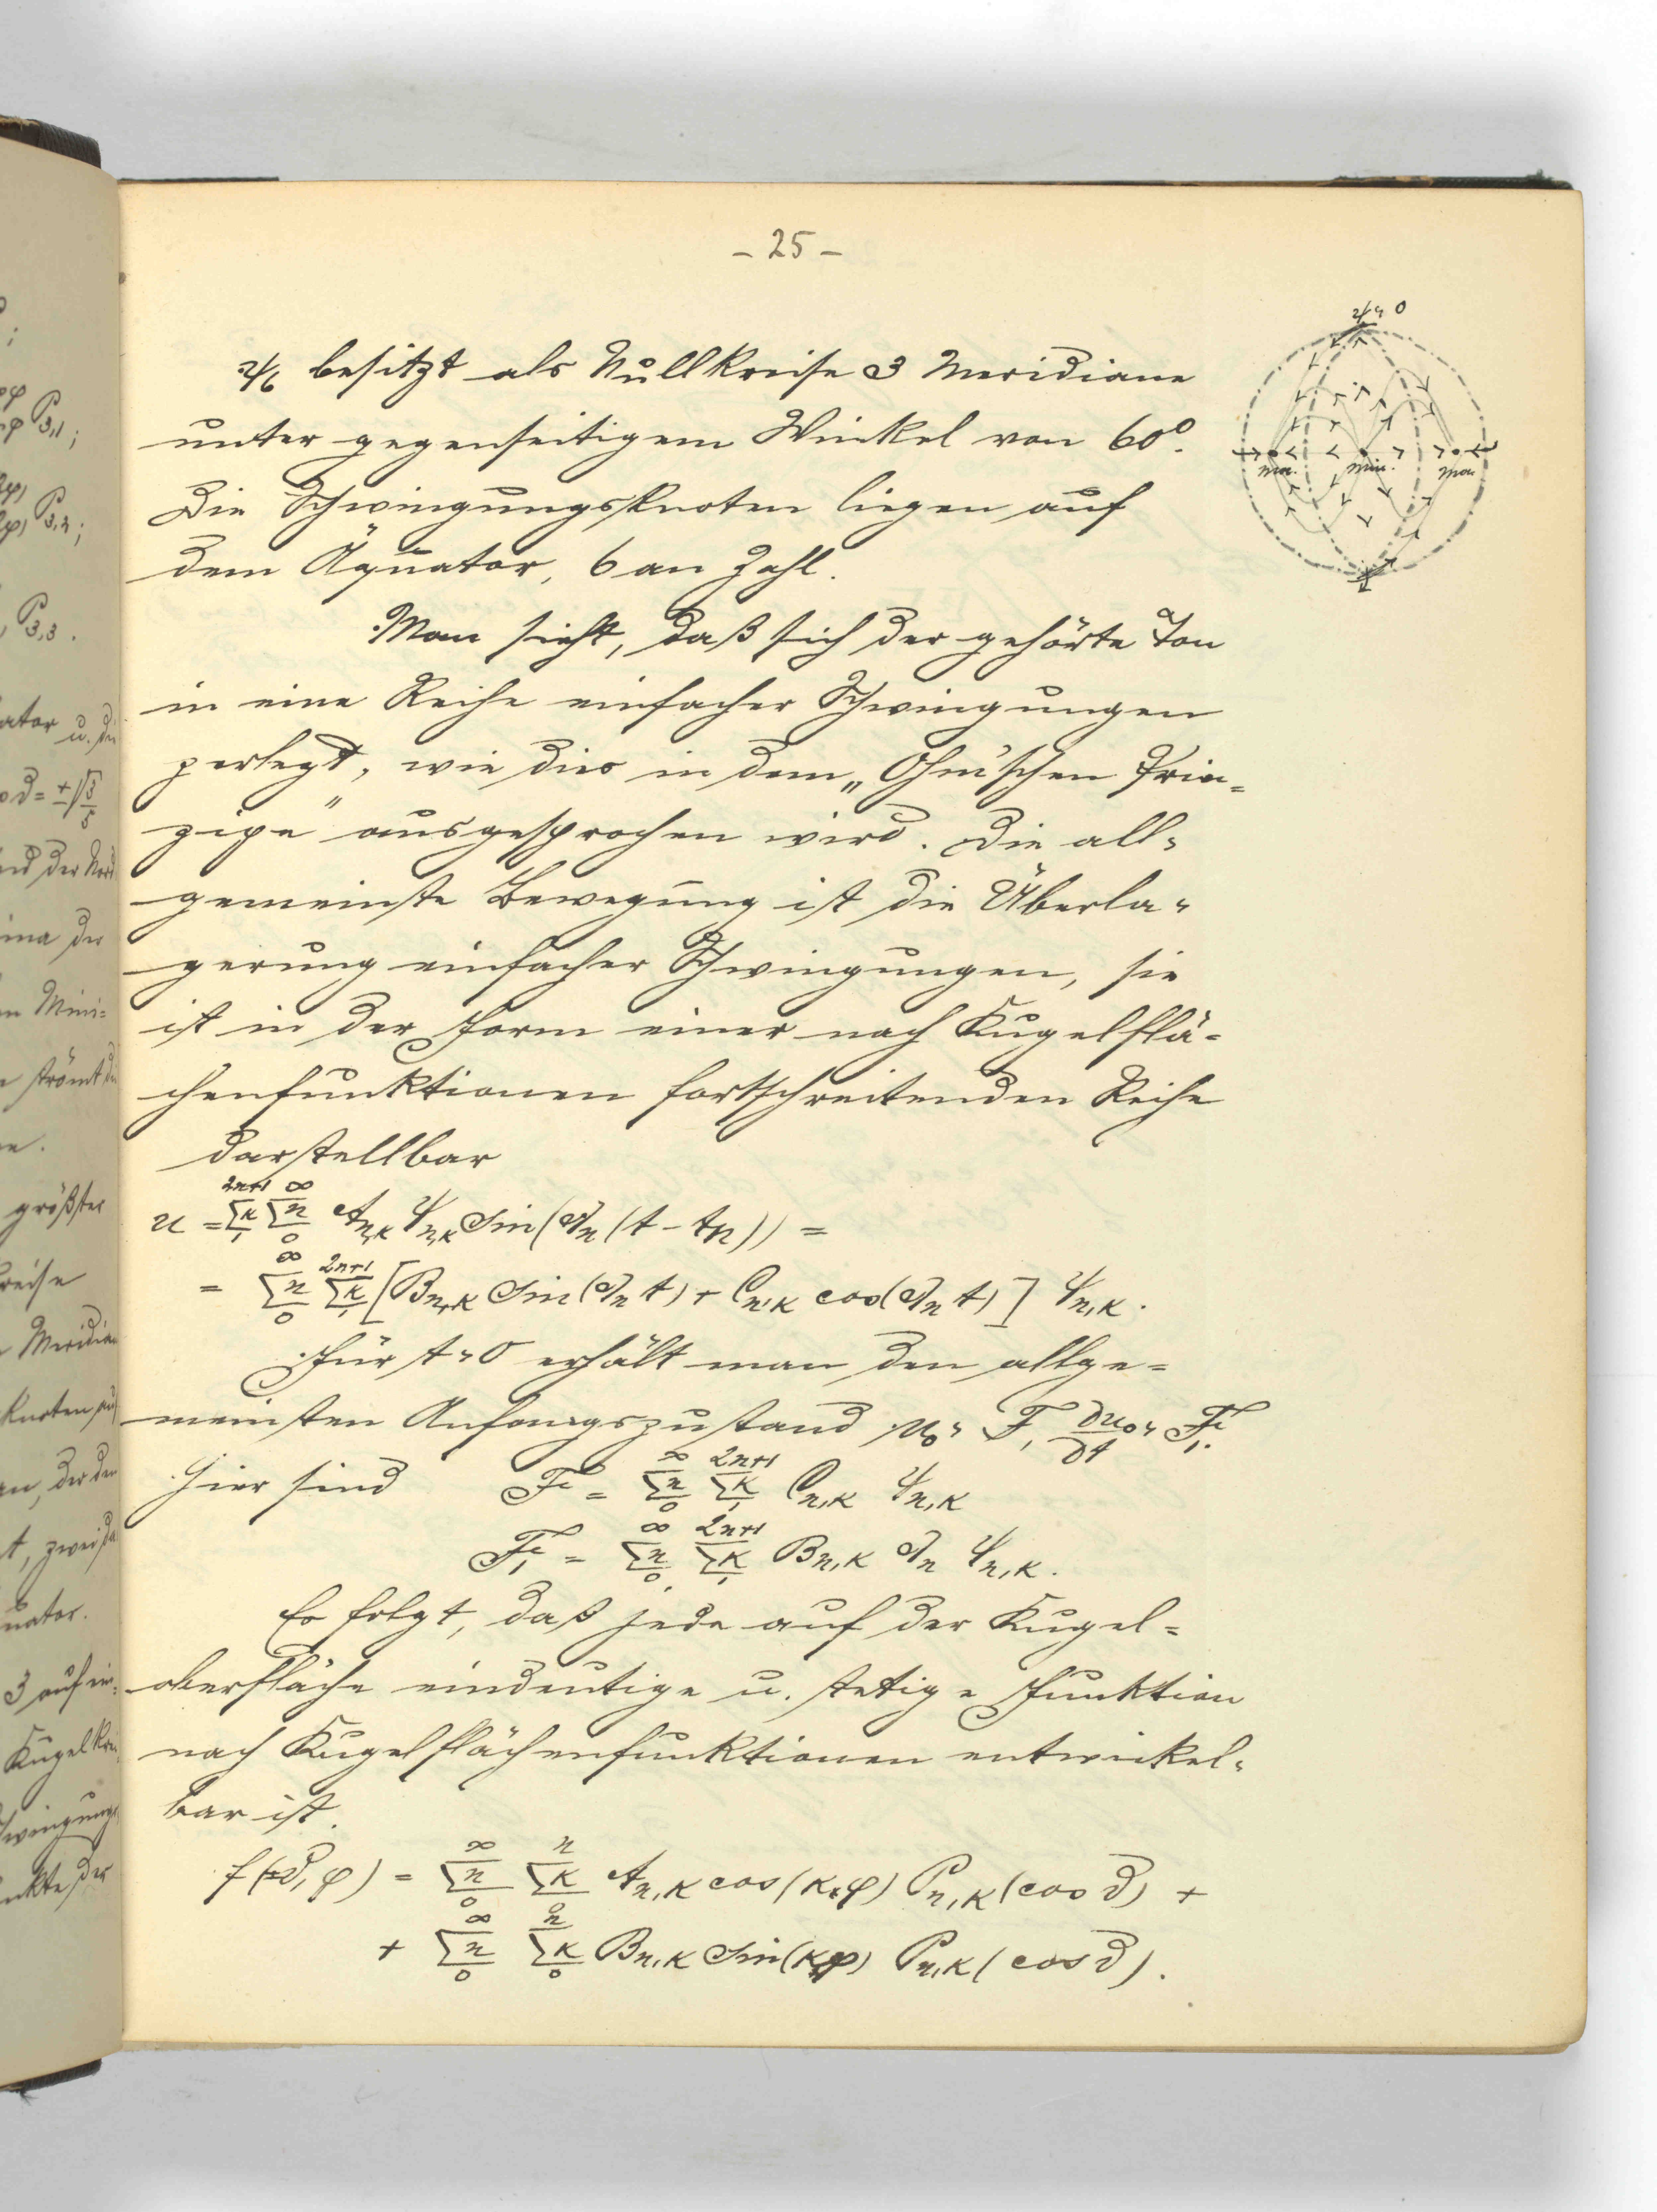 – 25 –
ψ=0
ψ₆ besitzt als Nullkreise 3 Meridiane
unter gegenseitigem Winkel von 60°.
Max. Min. Max.
Die Schwingungsknoten liegen auf
dem Äquator, 6 an Zahl.
Man sieht, daß sich der gehörte Ton
in eine Reihe einfacher Schwingungen
zerlegt, wie dies in dem „Ohm'schen Prin=
zipe" ausgesprochen wird. Die all=
gemeinste Bewegung ist die Überla=
gerung einfacher Schwingungen, sie
ist in der Form einer nach Kugelflä=
chenfunktionen fortschreitenden Reihe
darstellbar
u = Σₖ₌₁²ⁿ⁺¹ Σₙ₌₀^∞ Aₙ,ₖ ψₙ,ₖ sin(λₙ(t − tₙ)) =
= Σₙ₌₀^∞ Σₖ₌₁²ⁿ⁺¹ [Bₙ,ₖ sin(λₙ t) + Cₙ,ₖ cos(λₙ t)] ψₙ,ₖ.
Für t=0 erhält man den allge=
meinsten Anfangszustand u₀ = F, ∂u₀/∂t = F₁.
Hier sind F = Σₙ₌₀^∞ Σₖ₌₁²ⁿ⁺¹ Cₙ,ₖ ψₙ,ₖ
F₁ = Σₙ₌₀^∞ Σₖ₌₁²ⁿ⁺¹ Bₙ,ₖ λₙ ψₙ,ₖ.
Es folgt, daß jede auf der Kugel=
oberfläche eindeutige u. stetige Funktion
nach Kugelflächenfunktionen entwickel=
bar ist.
f(ϑ, φ) = Σₙ₌₀^∞ Σₖ₌₀ⁿ Aₙ,ₖ cos(κφ) Pₙ,ₖ(cos ϑ) +
+ Σₙ₌₀^∞ Σₖ₌₀ⁿ Bₙ,ₖ sin(κφ) Pₙ,ₖ(cos ϑ).